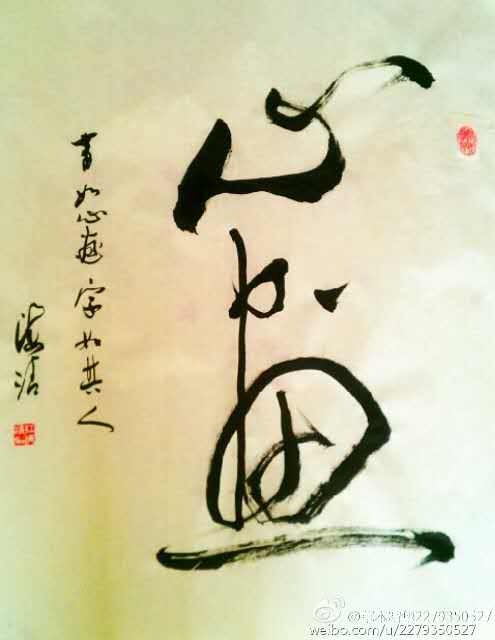 心畫
書如心畫字如其人
海清
weibo.com/u/2279350527